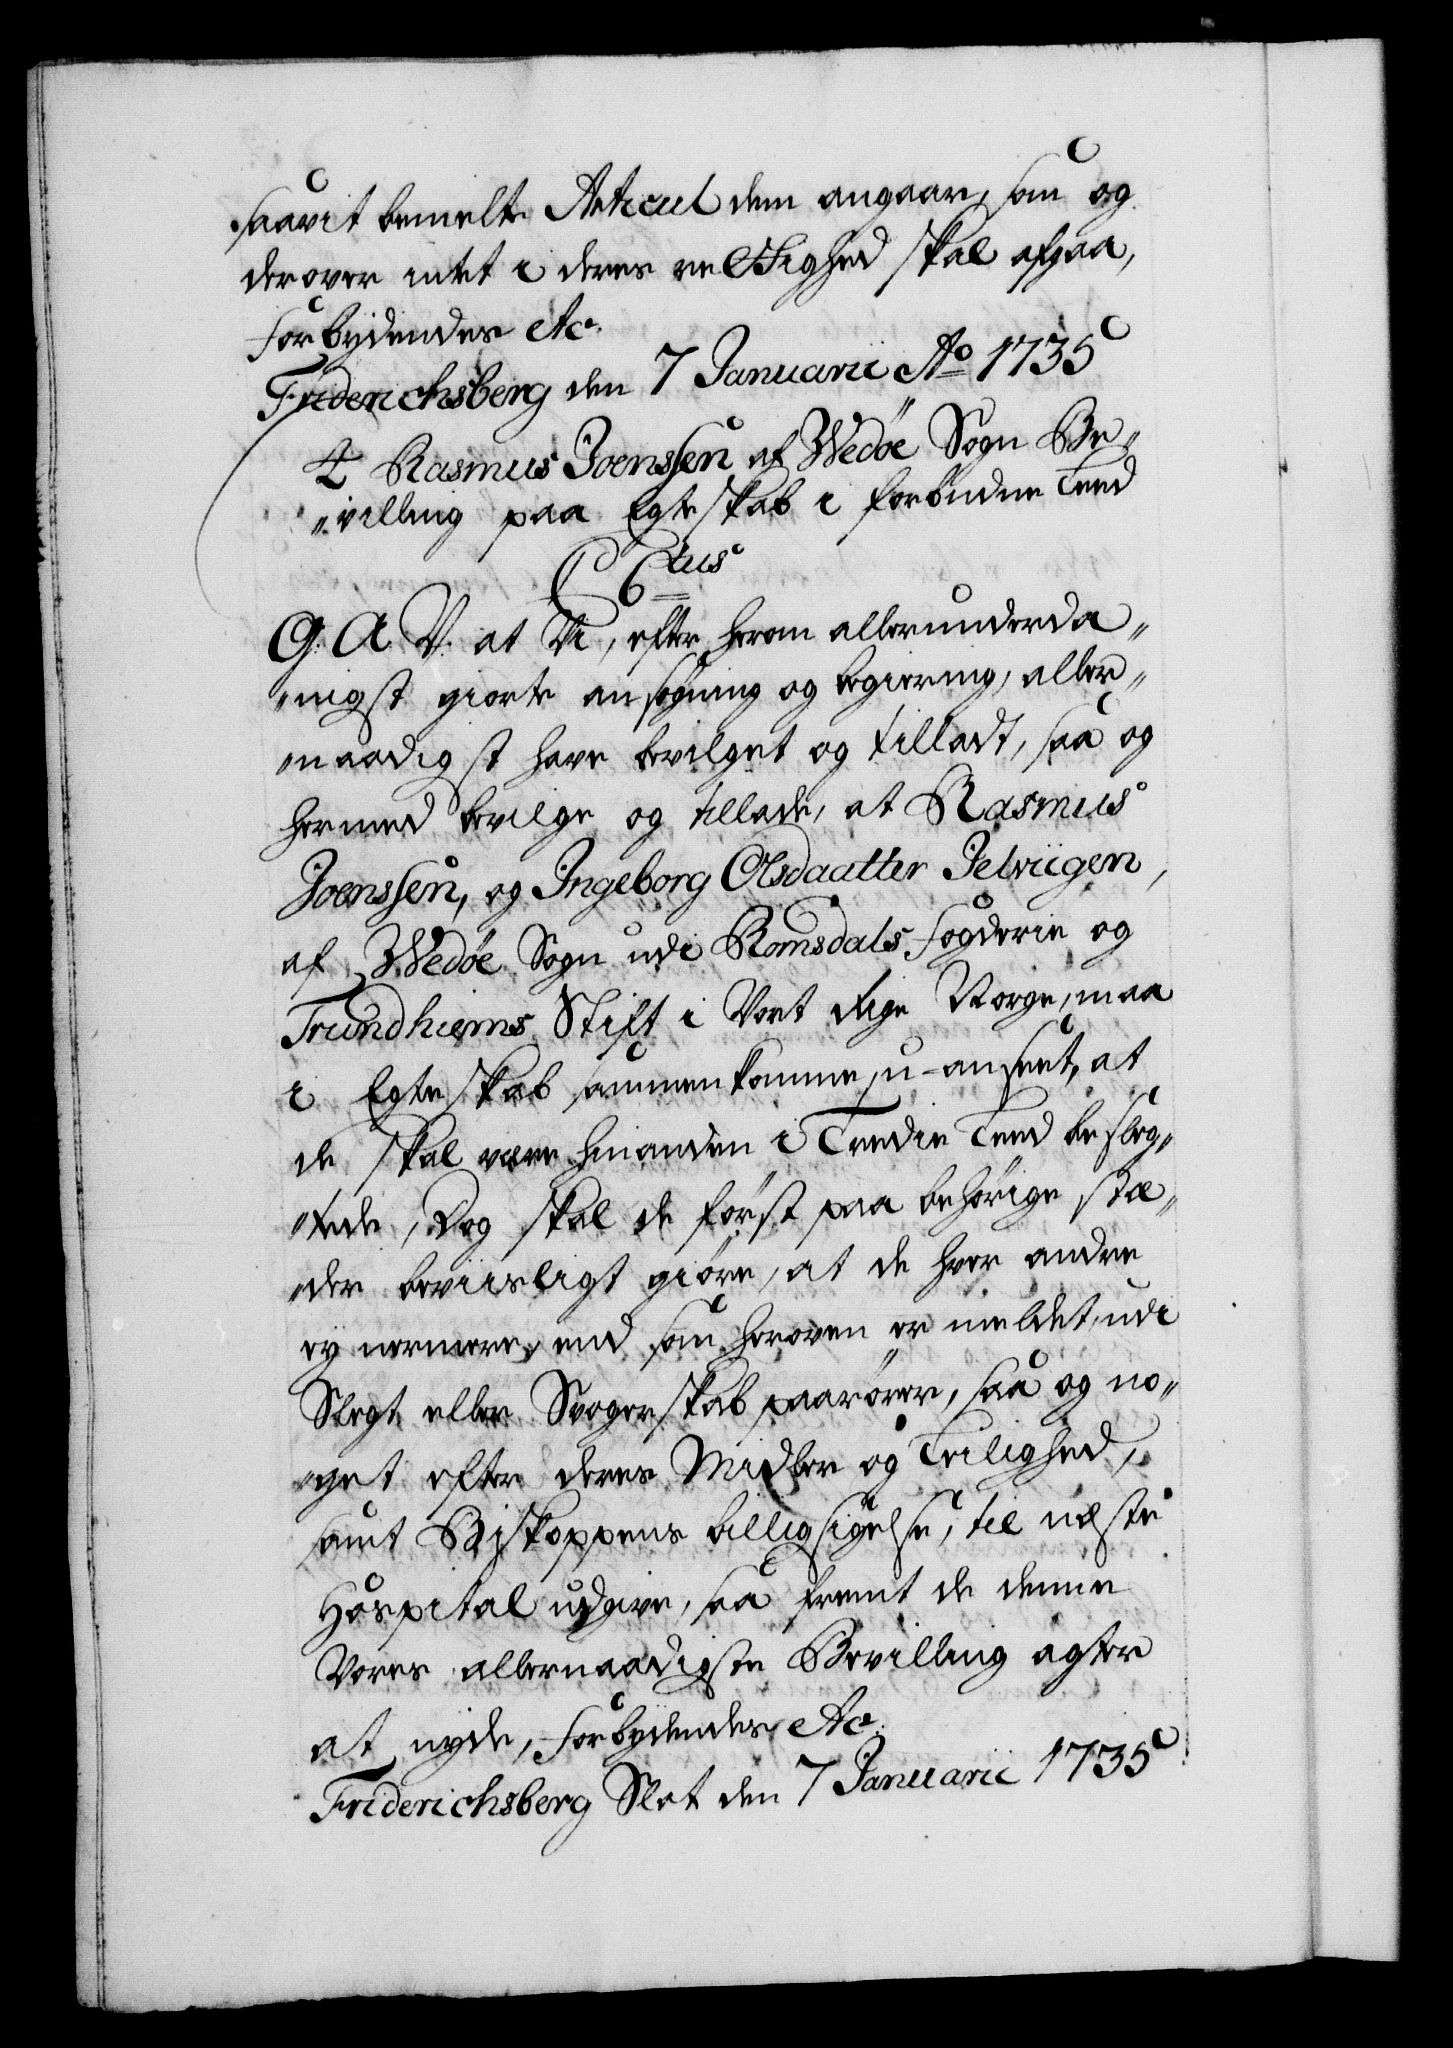 saavit bemelte Articul dem angaar, som og
derover intet i deres rettighed skal afgaa,
Forbydendes etc.
Friderichsberg den 7 Januarii Ao 1735
4 Rasmus Joenssen af Wedöe Sogn Be„
„villing paa Egteskab i forbudne Leed
C 6tus
G: A: V: at Vi, efter herom allerunderda„
„nigst giorte ansøgning og begiering, aller„
„naadigst have bevilget og tilladt, saa og
hermed bevilge og tillade, at Rasmus
Joenssen, og Ingeborg Olsdaatter Jelviigen,
af Wedöe Sogn udi Romsdals Fogderie og
Trundhiems Stift i Vort Rige Norge, maa
i Egteskab sammenkomme, u-anseet, at
de skal være hinanden i Tredie Leed beslæg„
„tede, Dog skal de först paa behörige stæ„
„der beviisligt giöre, at de hver andre
ey nermere, end som heroven er meldet, udi
Slegt eller Svogerskab paarörer, saa og no„
„get efter deres Midler og Leilighed,
samt Biskoppens billigsigelse, til næste
Hospital udgive, saa fremt de denne
Vores allernaadigste Bevilling agter
at nyde, Forbydendes etc.
Friderichsberg Slot den 7 Januarii 1735